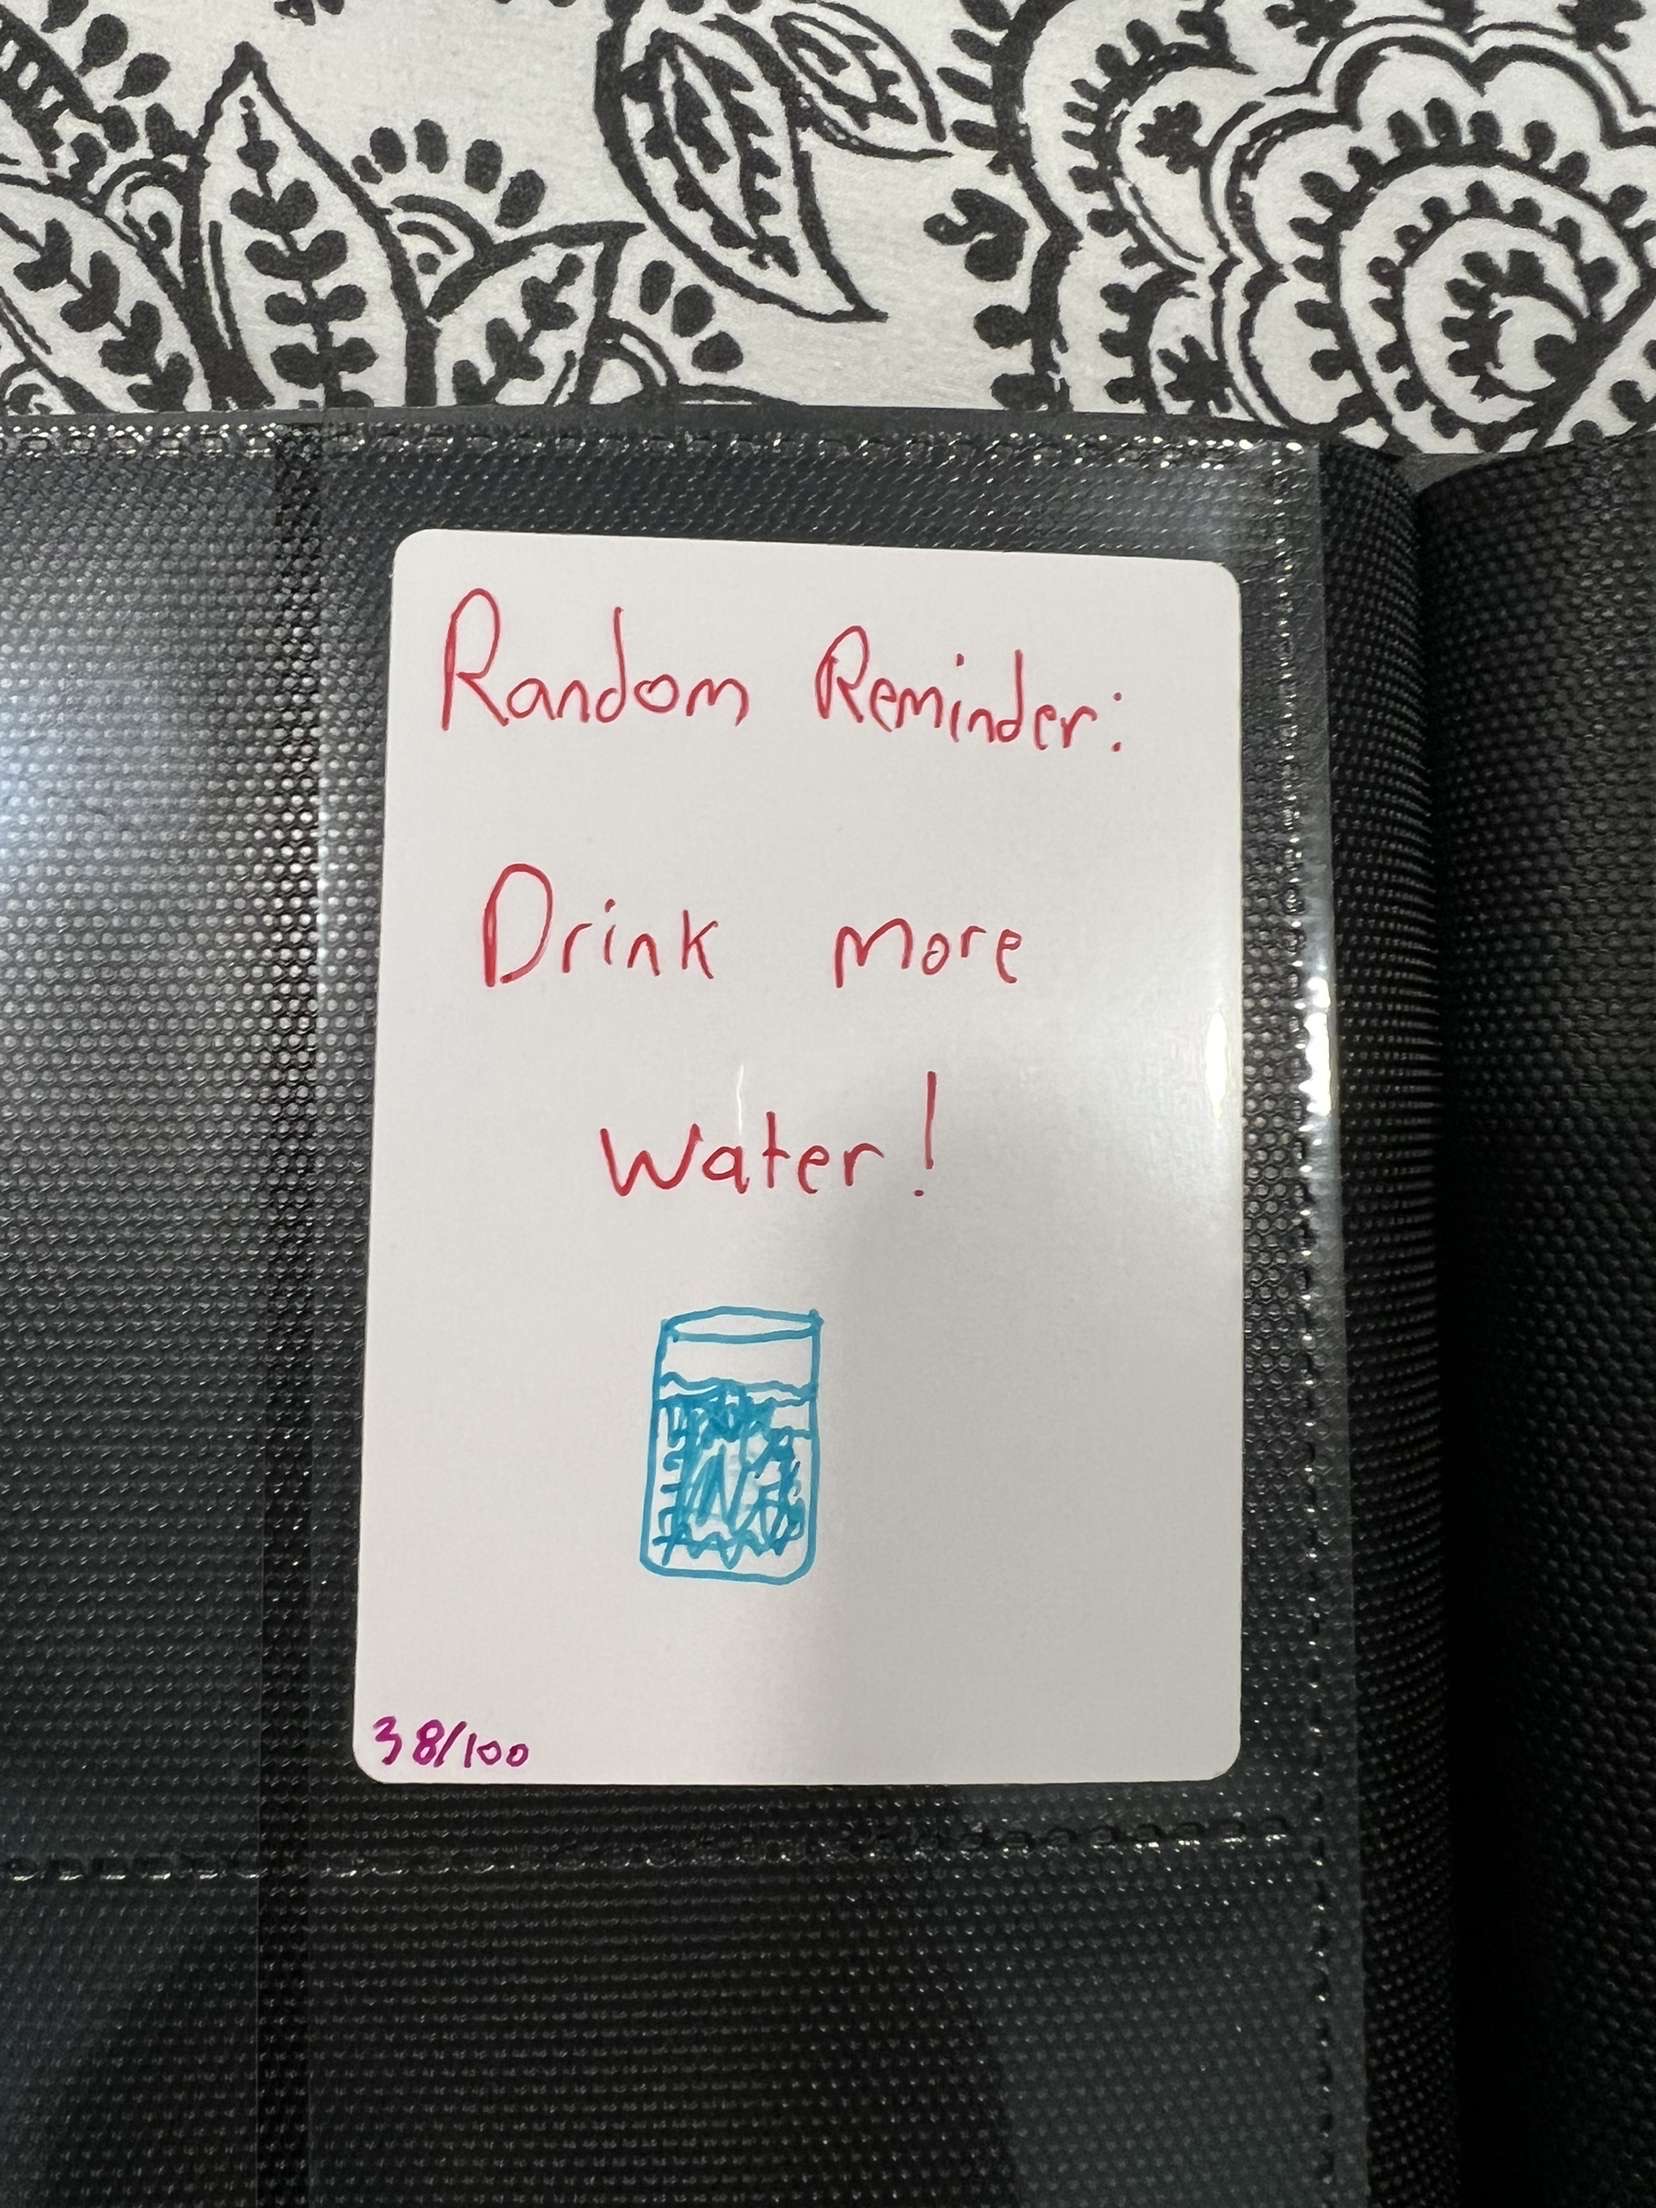 Random Reminder:
Drink more
water!
38/100